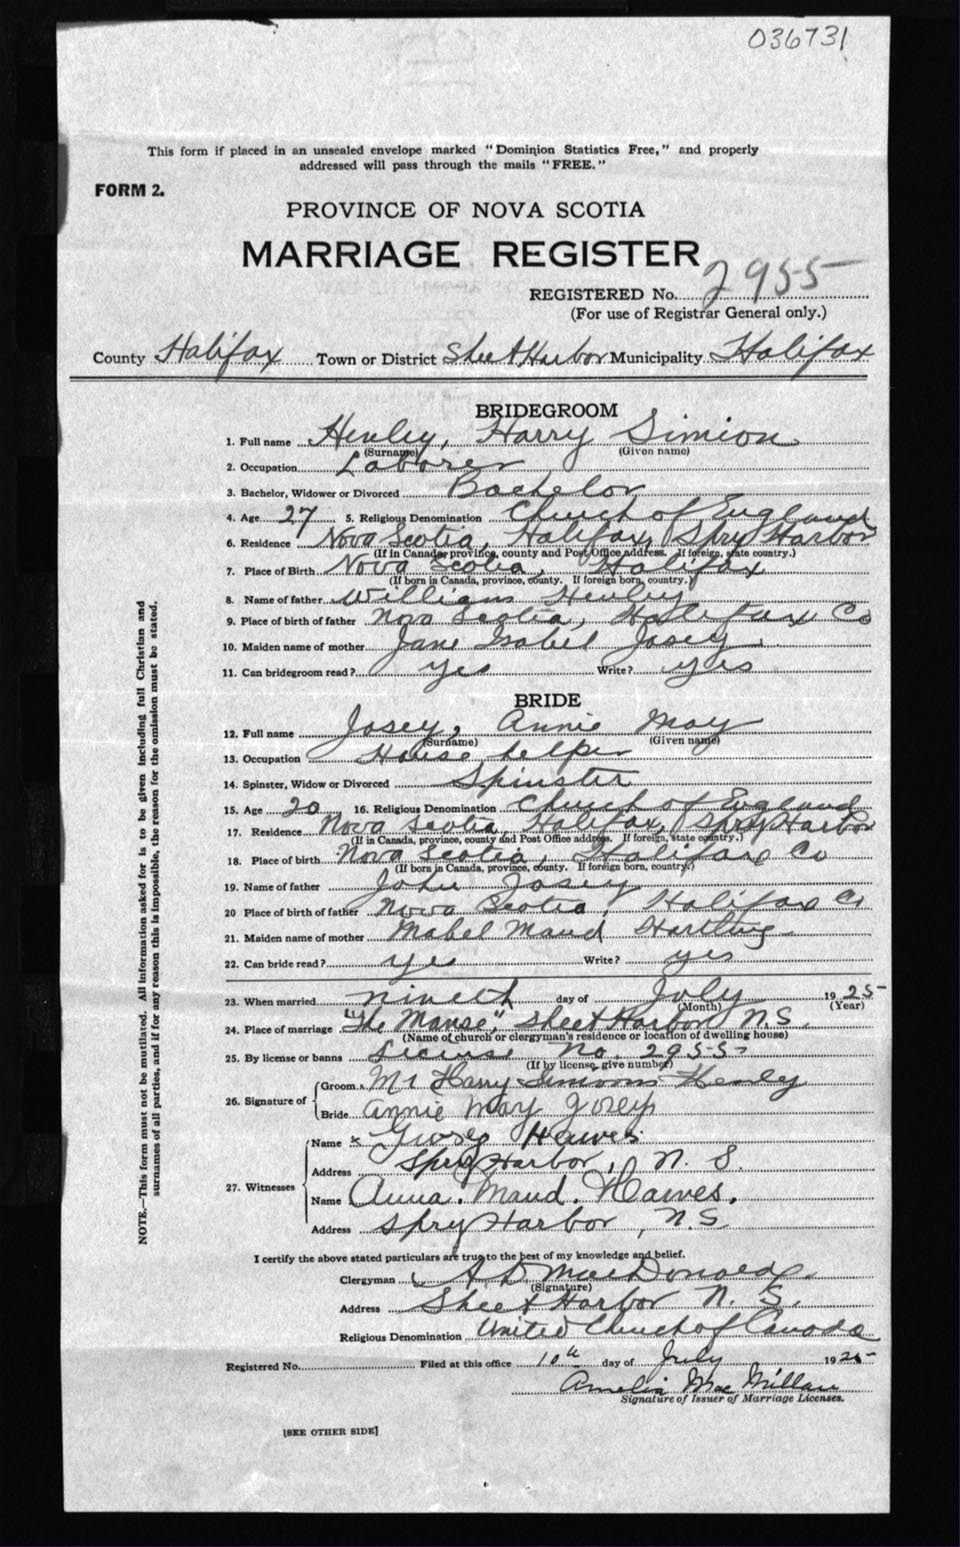 036731
This form if placed in an unsealed envelope marked "Dominion Statistics Free," and properly
addressed will pass through the mails "FREE."
FORM 2.
PROVINCE OF NOVA SCOTIA
MARRIAGE REGISTER
REGISTERED No. 2955
(For use of Registrar General only.)
County Halifax Town or District Sheet Harbor Municipality Halifax
BRIDEGROOM
1. Full name Henley, Harry Simion
(Surname) (Given name)
2. Occupation Laborer
3. Bachelor, Widower or Divorced Bachelor
4. Age 27 5. Religious Denomination Church of England
6. Residence Nova Scotia, Halifax, Spry Harbor
(If in Canada, province, county and Post Office address. If foreign, state country.)
7. Place of Birth Nova Scotia, Halifax
(If born in Canada, province, county. If foreign born, country.)
8. Name of father William Henley
9. Place of birth of father Nova Scotia, Halifax Co
10. Maiden name of mother Jane Isabel Josey
11. Can bridegroom read? yes Write? yes
BRIDE
12. Full name Josey, Annie May
(Surname) (Given name)
13. Occupation House helper
14. Spinster, Widow or Divorced Spinster
15. Age 20 16. Religious Denomination Church of England
17. Residence Nova Scotia, Halifax, Spry Harbor
(If in Canada, province, county and Post Office address. If foreign, state country.)
18. Place of birth Nova Scotia, Halifax Co
(If born in Canada, province, county. If foreign born, country.)
19. Name of father John Josey
20 Place of birth of father Nova Scotia, Halifax Co
21. Maiden name of mother Mabel Maud Hartling
22. Can bride read? yes Write? yes
23. When married nineth day of July 1925
(Month) (Year)
24. Place of marriage "The Manse", Sheet Harbor N.S.
(Name of church or clergyman's residence or location of dwelling house)
25. By license or banns License No. 2955
(If by license, give number)
26. Signature of
Groom Mr Harry Simions Henley
Bride Annie May Josey
27. Witnesses
Name x George Hawes
Address Spry Harbor, N. S.
Name Anna. Maud. Hawes.
Address Spry Harbor, N.S.
I certify the above stated particulars are true to the best of my knowledge and belief.
Clergyman A. D. MacDonald.
(Signature)
Address Sheet Harbor N. S.
Religious Denomination United Church of Canada
Registered No. Filed at this office 10th day of July 1925
Amelia MacMillan
Signature of Issuer of Marriage Licenses.
[SEE OTHER SIDE]
NOTE.—This form must not be mutilated. All information asked for is to be given including full Christian and
surnames of all parties, and if for any reason this is impossible, the reason for the omission must be stated.